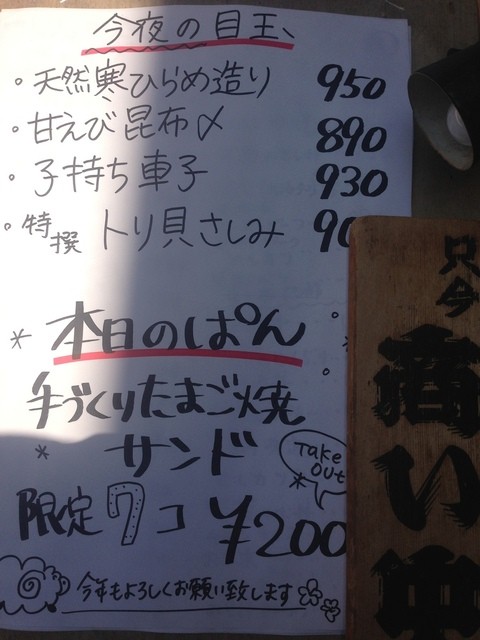 今夜の目玉、
・天然寒ひらめ造り 950
・甘えび昆布〆 890
・子持ち車子 930
・特撰 トリ貝さしみ 90
* 本日のぱん
手づくりたまご焼
* サンド
Take out *
限定7コ ¥200
今年もよろしくお願い致します
只今
商い中